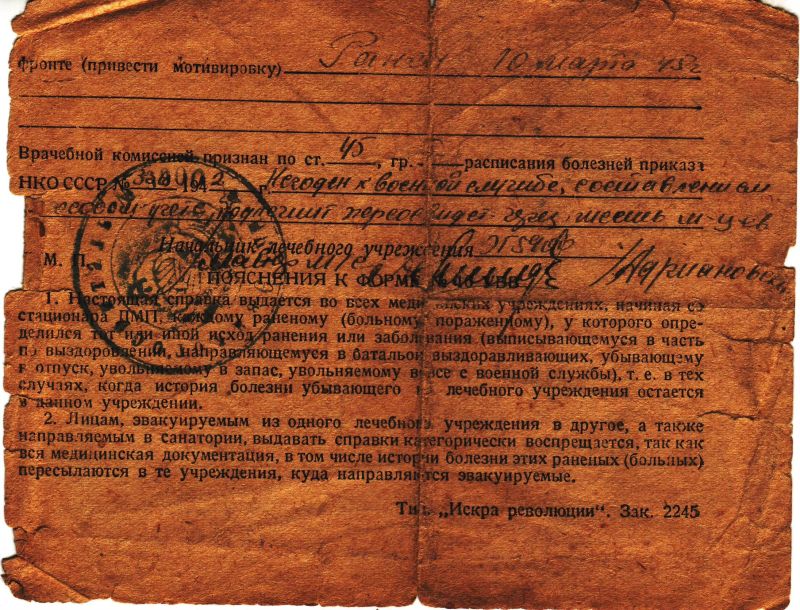 фронте (привести мотивировку) Ранен 10 марта 45г
Врачебной комиссией признан по ст. 45, гр. расписания болезней приказа
НКО СССР № 336 194 2 г. Негоден к военной службе, со
особый учет, подлежит через шесть м-цев
Начальник лечебного учреждения
М. П. майор м/с Адриановский
ПОЯСНЕНИЯ К ФОРМЕ №
1. Настоящая справка выдается во всех медицинских учреждениях, начиная со
стационара ПМП, каждому раненому (больному, пораженному), у которого опре-
делился тот или иной исход ранения или заболевания (выписывающемуся в часть
по выздоровлении, направляющемуся в батальон выздоравливающих, убывающему
в отпуск, увольняемому в запас, увольняемому вовсе с военной службы), т. е. в тех
случаях, когда история болезни убывающего из лечебного учреждения остается
в данном учреждении.
2. Лицам, эвакуируемым из одного лечебного учреждения в другое, а также
направляемым в санатории, выдавать справки категорически воспрещается, так как
вся медицинская документация, в том числе истории болезни этих раненых (больных)
пересылаются в те учреждения, куда направляются эвакуируемые.
Тип. „Искра революции". Зак. 2245